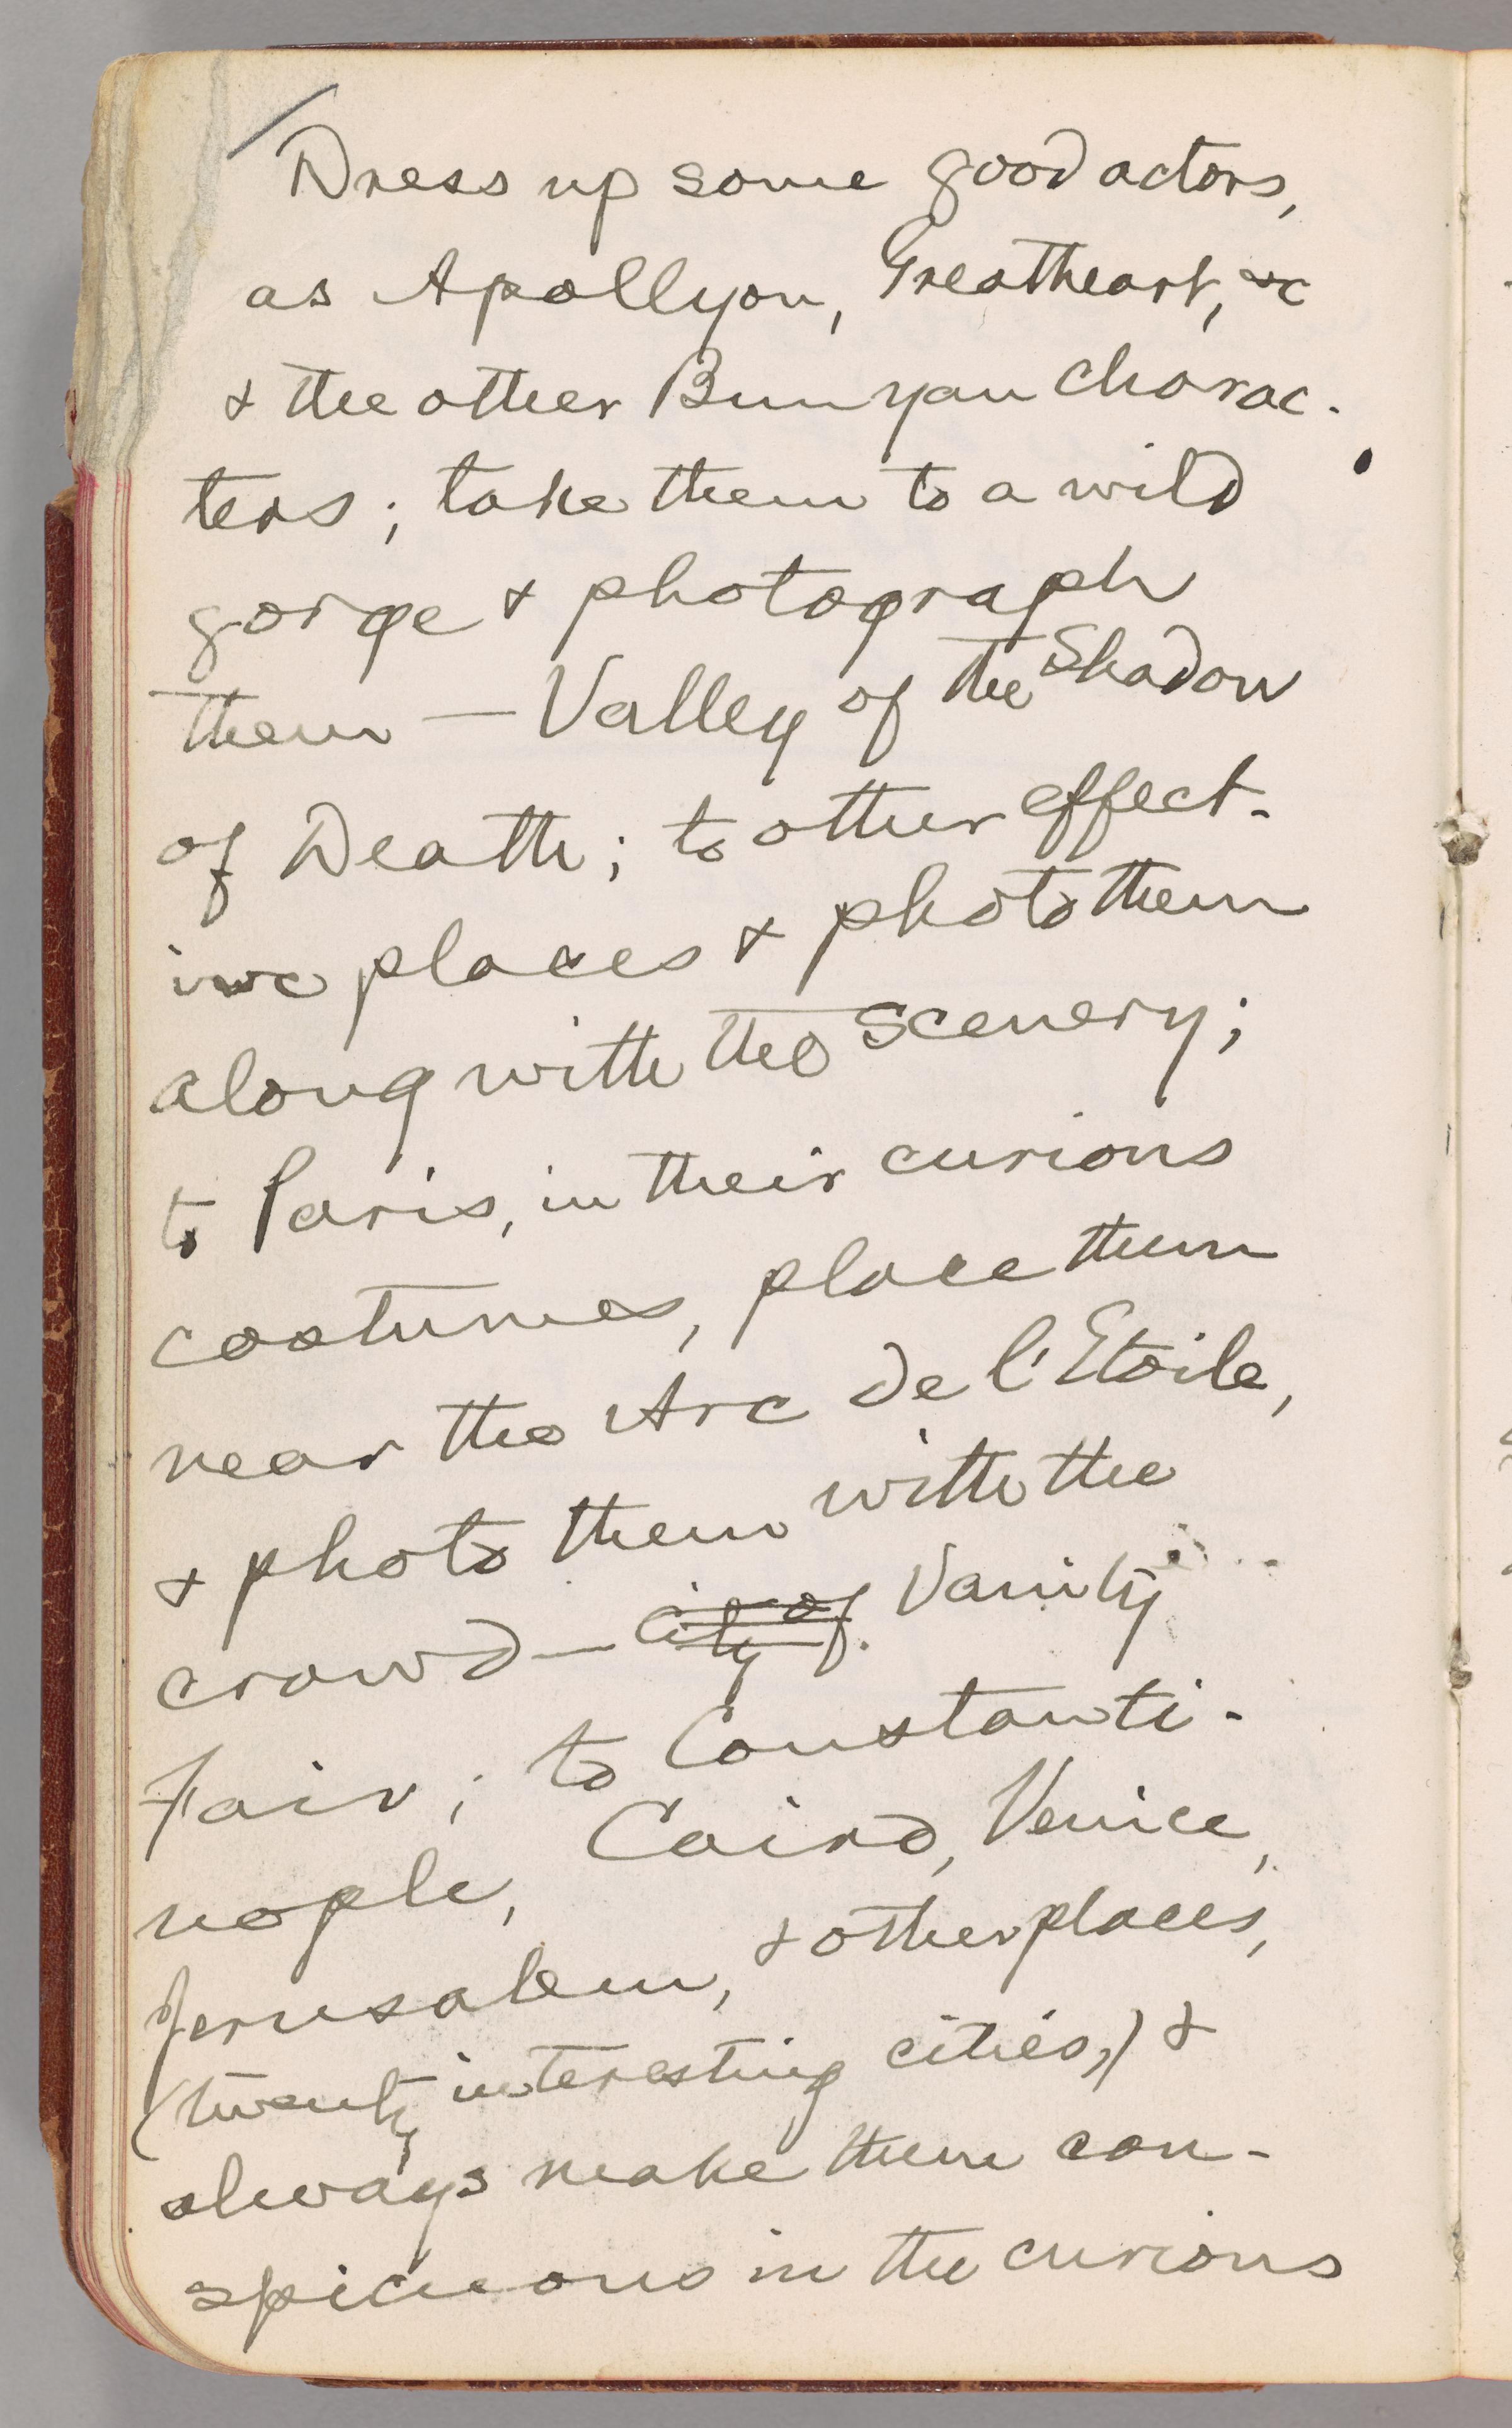 Dress up some good actors,
as Apollyon, Greatheart, &c
& the other Bunyan charac-
ters; take them to a wild
gorge & photograph
them — Valley of the Shadow
of Death; to other effect-
ive places & photo them
along with the scenery;
to Paris, in their curious
costumes, place them
near the Arc de l'Etoile,
& photo them with the
crowd — city of Vanity
Fair; to Constanti-
nople, Cairo, Venice,
Jerusalem, & other places,
(twenty interesting cities,) &
always make them con-
spicuous in the curious